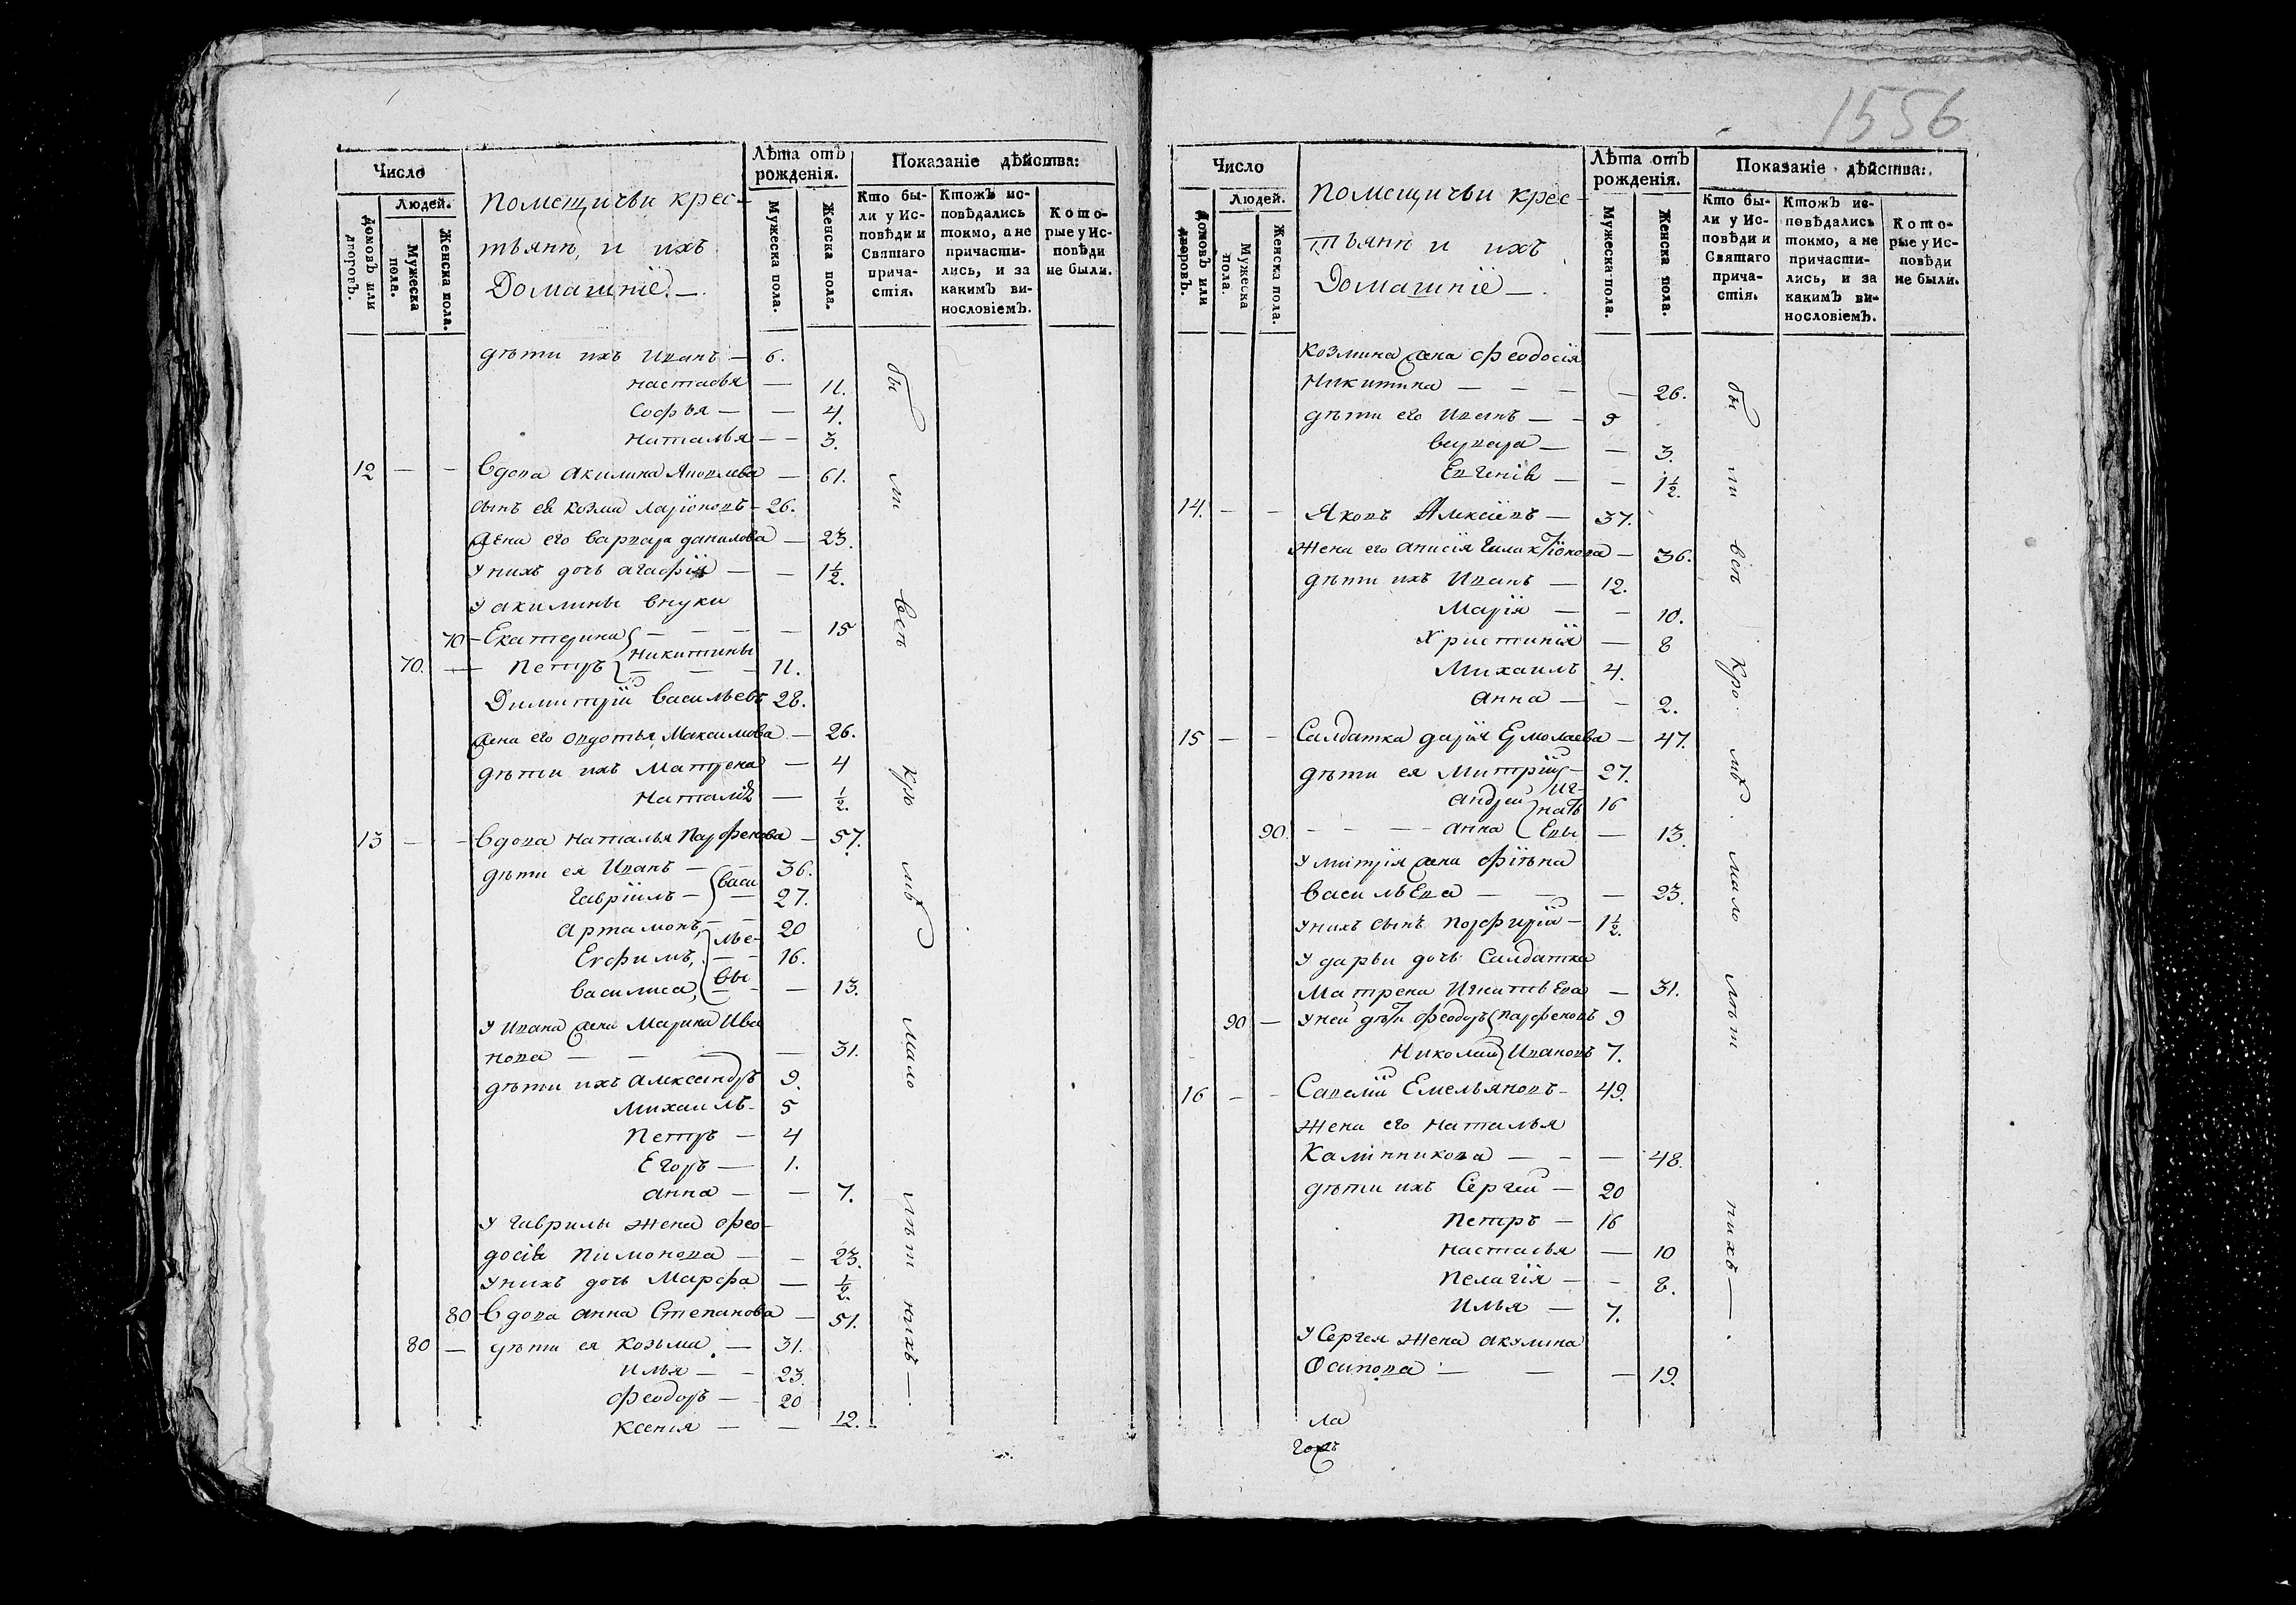 1556
Число
Людей.
Домовъ или дворовъ.
Мужеска пола.
Женска пола.
Помещичьи крес-
тьянѣ, и ихъ
Домашніе. —
Лѣта отъ рожденія.
Мужеска пола.
Женска пола.
Показаніе дѣйства:
Кто бы-
ли у Ис-
повѣди и
Святаго
прича-
стія.
Ктожъ ис-
повѣдались
токмо, а не
причасти-
лись, и за
какимъ ви-
нословіемъ.
Кото-
рые у Ис-
повѣди
не были.
дѣти ихъ Иванъ — 6.
настасья — 11.
Софья — — 4.
наталья — — 3.
12 — — Вдова акилина Яковлева — 61.
сынъ ея козма ларіоновъ - 26.
жена его варвара данилова — 23.
У нихъ дочь агафія — — 1½.
У акилины внуки
70 - Екатерина — — — — 15
Никитины
70. — Петръ — — — 11.
Димитрій васильевъ 28.
жена его овдотья Максимова — 26.
дѣти ихъ Матрена — 4
Наталія — ½.
13 — — Вдова наталья Парфенова — 57.
дѣти ея Иванъ — — 36.
Васи
гавріилъ — — 27.
артамонъ, — — 20
лье-
Ефимъ, — — 16.
василиса, вы — 13.
У ивана жена Марина Ива
нова — — — — 31.
дѣти ихъ александръ 9.
Михаилъ - 5
Петръ — 4
Егоръ — 1.
анна — — 7.
У гаврилы жена фео-
досія Пимонова — — 23.
У нихъ дочь Марфа — ½.
80 Вдова анна Степанова — 51.
80 — дѣти ея козьма — 31.
илья — — 23.
феодоръ — 20
ксенія — — 12.
бы ли всѣ Кро мѣ мало лѣт нихъ — .
Число
Людей.
Домовъ или дворовъ.
Мужеска пола.
Женска пола.
Помещичьи крес-
тьянѣ и ихъ
Домашніе — .
Лѣта отъ рожденія.
Мужеска пола.
Женска пола.
Показаніе дѣйства:
Кто бы-
ли у Ис-
повѣди и
Святаго
прича-
стія.
Ктожъ ис-
повѣдались
токмо, а не
причасти-
лись, и за
какимъ ви-
нословіемъ.
Кото-
рые у Ис-
повѣди
не были.
козмина жена феодосія
Никитина — — — — 26.
дѣти его Иванъ — - 5
варвара — — 3.
Евгенія — — 1½.
14. — — Яковъ Алексѣевъ — 37.
жена его анисія — 36.
дѣти ихъ Иванъ — 12.
Марія — — 10.
Христинія — 8
Михаилъ 4.
анна — — 2.
15 — — Салдатка дарія Ермолаева — 47.
дѣти ея Митрій — 27.
Иг-
андрей нать 16
90. — — — анна Евы — 13.
У митрія жена
васильева — — — 23.
У нихъ сынъ порфирій — 1½.
У дарьи дочь Салдатка
Матрена Игнатьева — 31.
90 — У ней дѣти феодоръ парфеновъ 9
Николай Ивановъ 7.
16 — — Савелій Емельяновъ - 49.
жена его наталья
Калинникова — — — 48.
дѣти ихъ Сергей — 20
Петръ — 16
настасья — 10
Пелагія — — 8.
Илья — 7.
У Сергея жена акулина
Осипова — — — 19.
бы ли всѣ Кро мѣ мало лѣт нихъ — .
ла